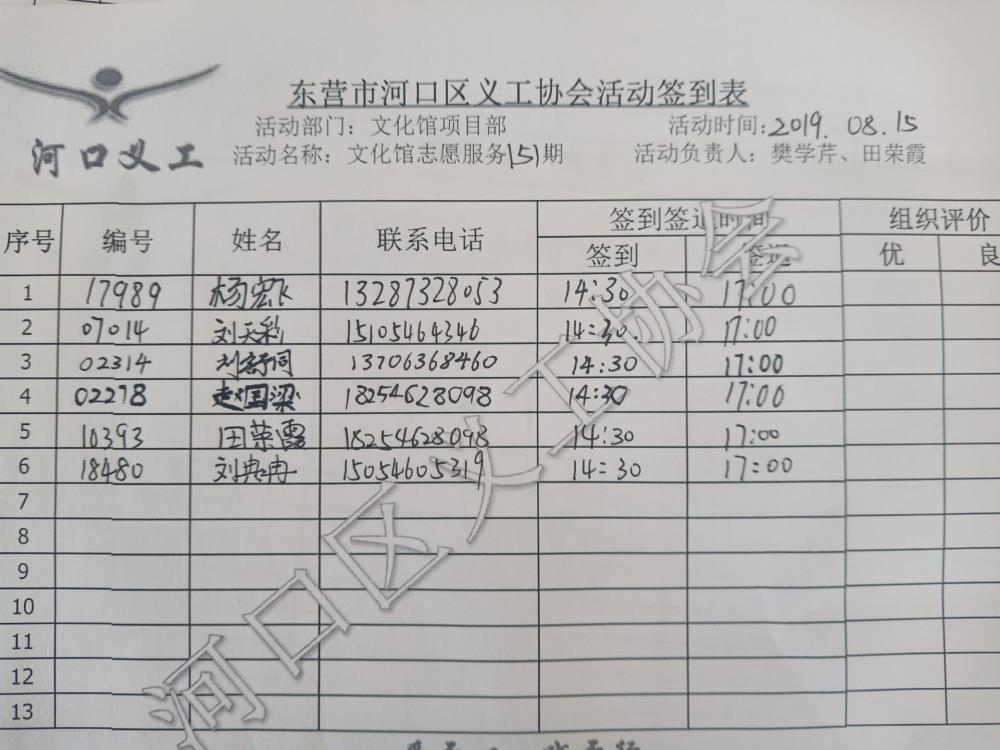 东营市河口区义工协会活动签到表
河口义工
活动部门：文化馆项目部 活动时间:2019.08.15
活动名称：文化馆志愿服务151期 活动负责人：樊学芹、田荣霞
序号 编号 姓名 联系电话 签到签退时间 组织评价
签到 签退 优 良
1 17989 杨宏飞 13287328053 14:30 17:00
2 07014 刘天彩 15105464346 14:30 17:00
3 02314 刘舒同 13706368460 14:30 17:00
4 02278 赵国梁 18254628098 14:30 17:00
5 10393 田荣霞 18254628098 14:30 17:00
6 18480 刘典冉 15054605319 14:30 17:00
7
8
9
10
11
12
13
河口区义工协会